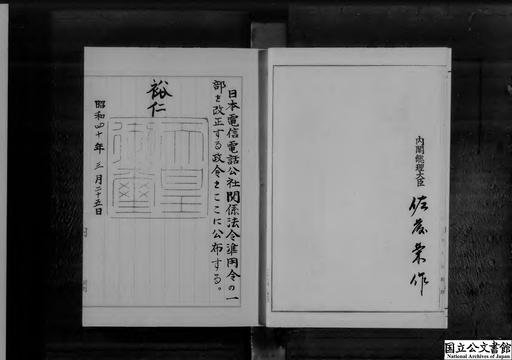 日本電信電話公社関係法令準用令の一
部を改正する政令をここに公布する。
裕仁
天皇
御璽
昭和四十年三月二十五日
内閣総理大臣 佐藤栄作
国立公文書館
National Archives of Japan